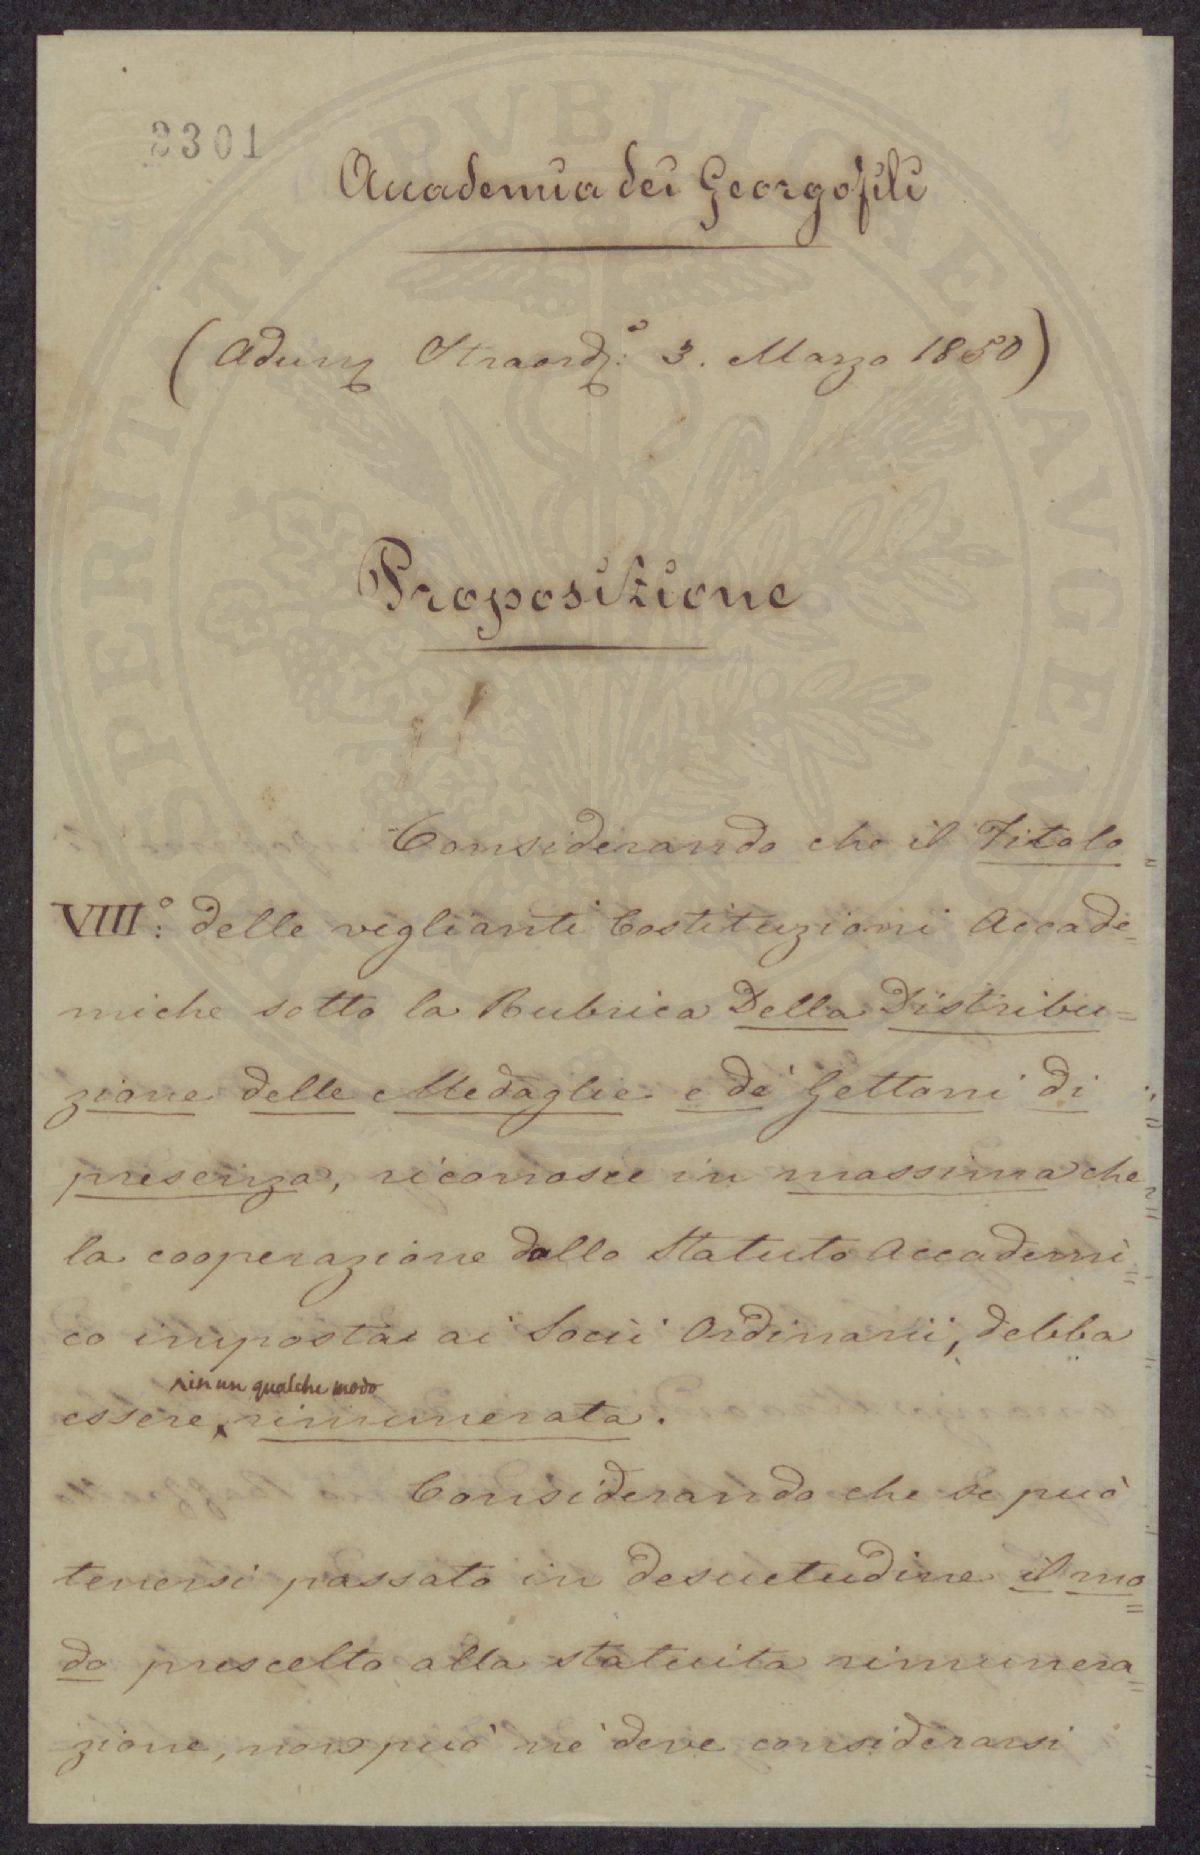 2301
Accademia dei Georgofili
(Adunz Straordz:ª 3. Marzo 1850)
Proposizione
Considerando che il Titolo
VIII:º delle veglianti Costituzioni Accade=
miche sotto la Rubrica Della Distribu=
zione delle Medaglie e de' Gettoni di
presenza, riconosce in massima che
la cooperazione dallo Statuto Accademi=
co imposta ai Socii Ordinarii, debba
in un qualche modo
essere rimunerata.
Considerando che se può
tenersi passato in desuetudine il mo=
do prescelto alla statuita rimunera=
zione, non può nè deve considerarsi
PROSPERITATI PVBLICAE AVGENDAE